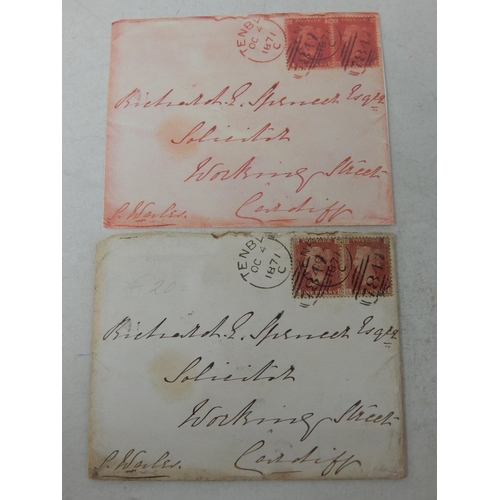 TENBY
OC 4
1871
C
Richard E. Spencer Esqre
Solicitor
Working Street
Cardiff
S. Wales.
TENBY
OC 4
1871
C
Richard E. Spencer Esqre
Solicitor
Working Street
Cardiff
S. Wales.